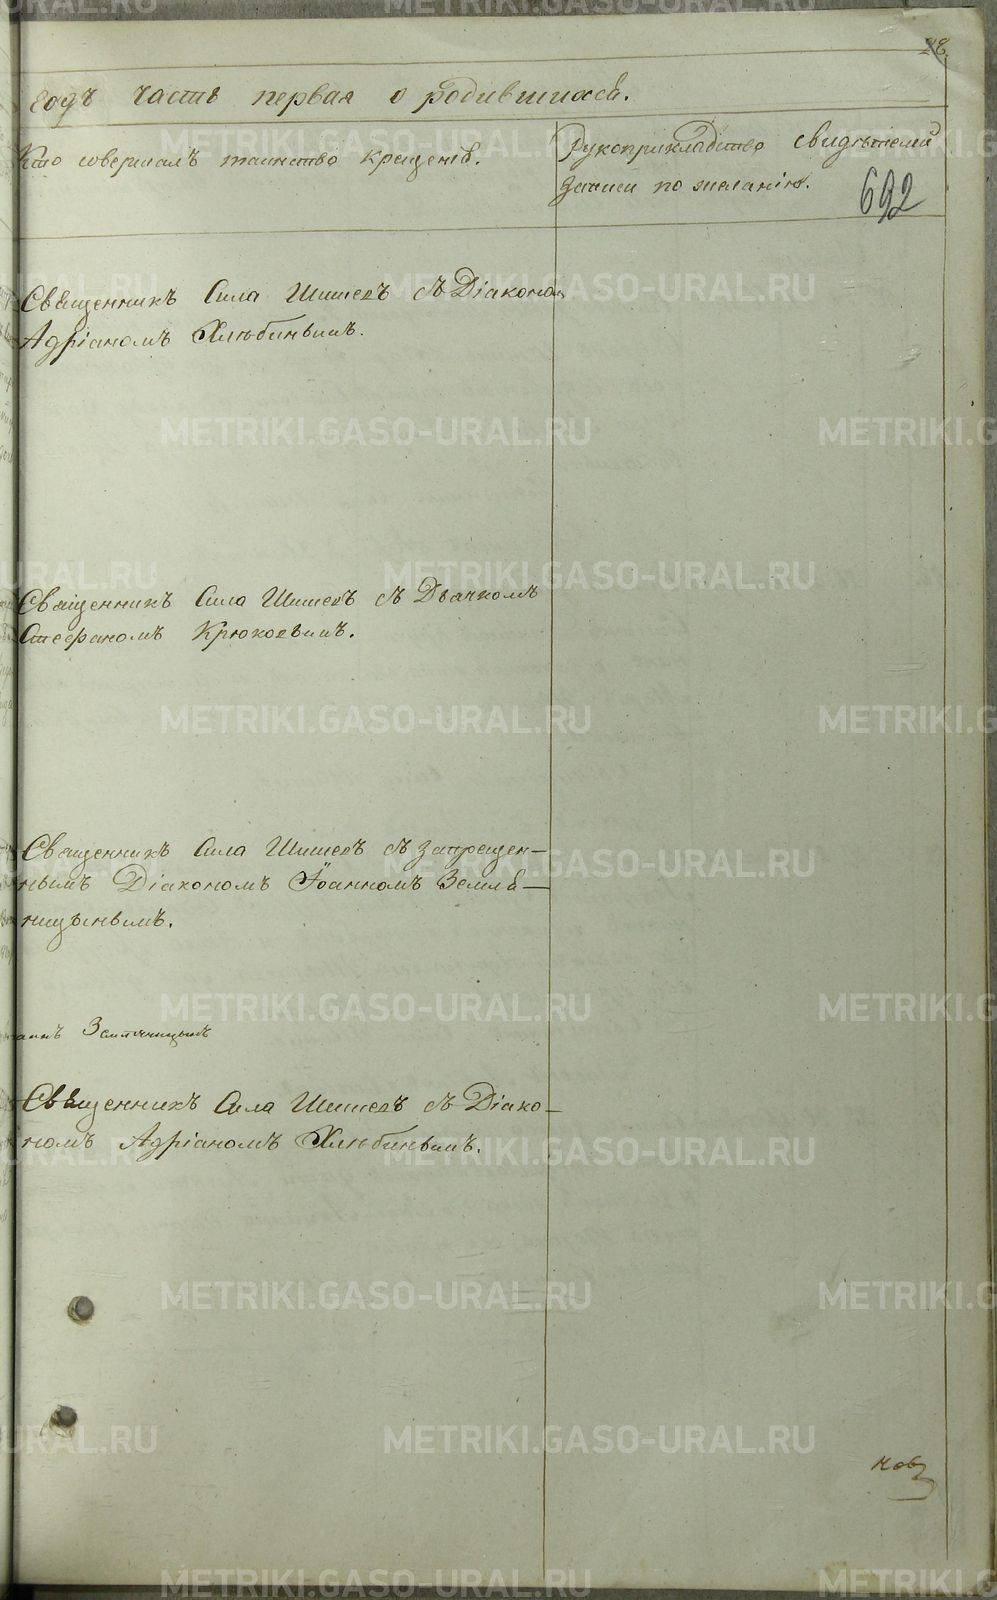 28
годъ часть первая о родившихся.
Кто совершалъ таинство крещенія.
Рукоприкладство свидѣтелей
записи по желанію.
692
Священникъ Сила Шишевъ съ Діакономъ
Адріаномъ Хлѣбинымъ.
Священникъ Сила Шишевъ съ Дьячкомъ
Стефаномъ Крюковымъ.
Священникъ Сила Шишевъ съ запрещен-
нымъ Діакономъ Іоанномъ Земля-
ницынымъ.
Земляницынъ
Священникъ Сила Шишевъ съ Діако-
номъ Адріаномъ Хлѣбинымъ.
METRIKI.GASO-URAL.RU